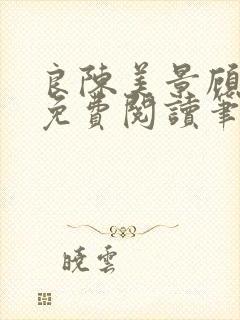 良陳美景顧
免費閱讀筆
曉雲